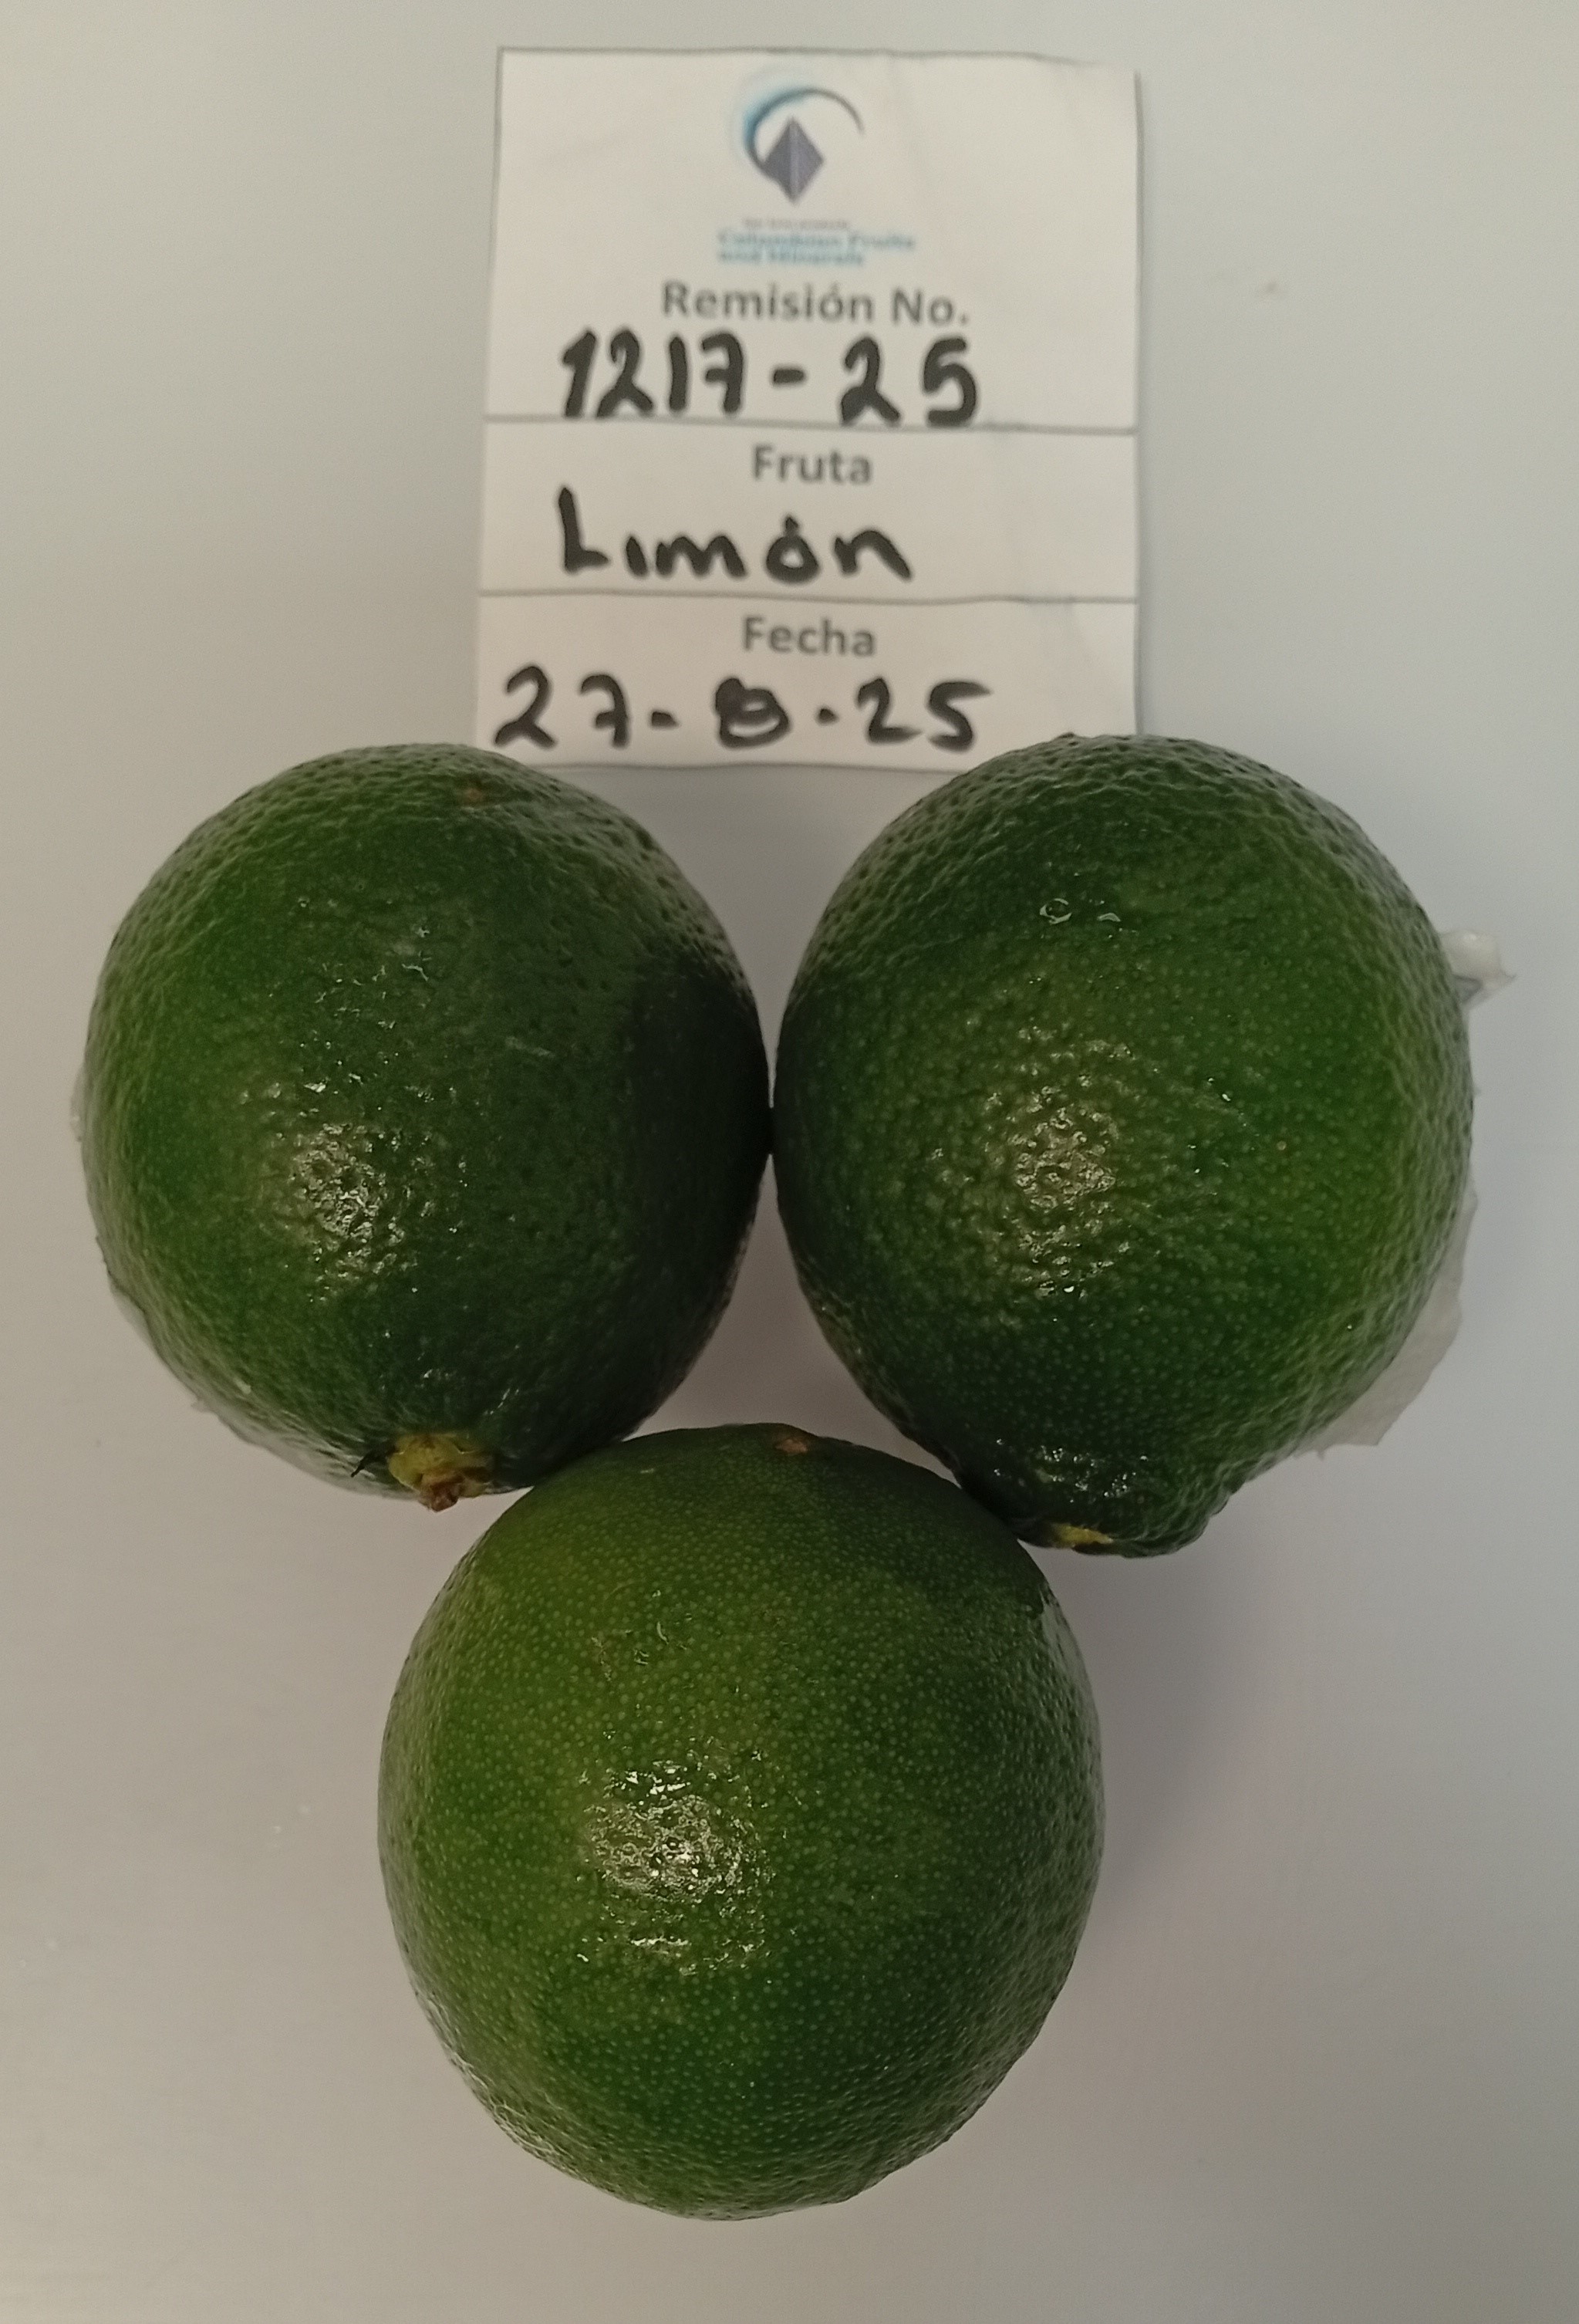 Colombian Fruits
and Minerals
Remisión No.
1217-25
Fruta
Limón
Fecha
27-8-25